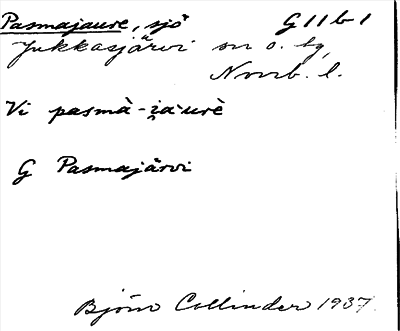 Pasmajaure, sjö G 11 b 1
Jukkasjärvi sn o. tg,
Norrb. l.
Vi pasmà-i̯a·urè
G Pasmajärvi
Björn Collinder 1937.